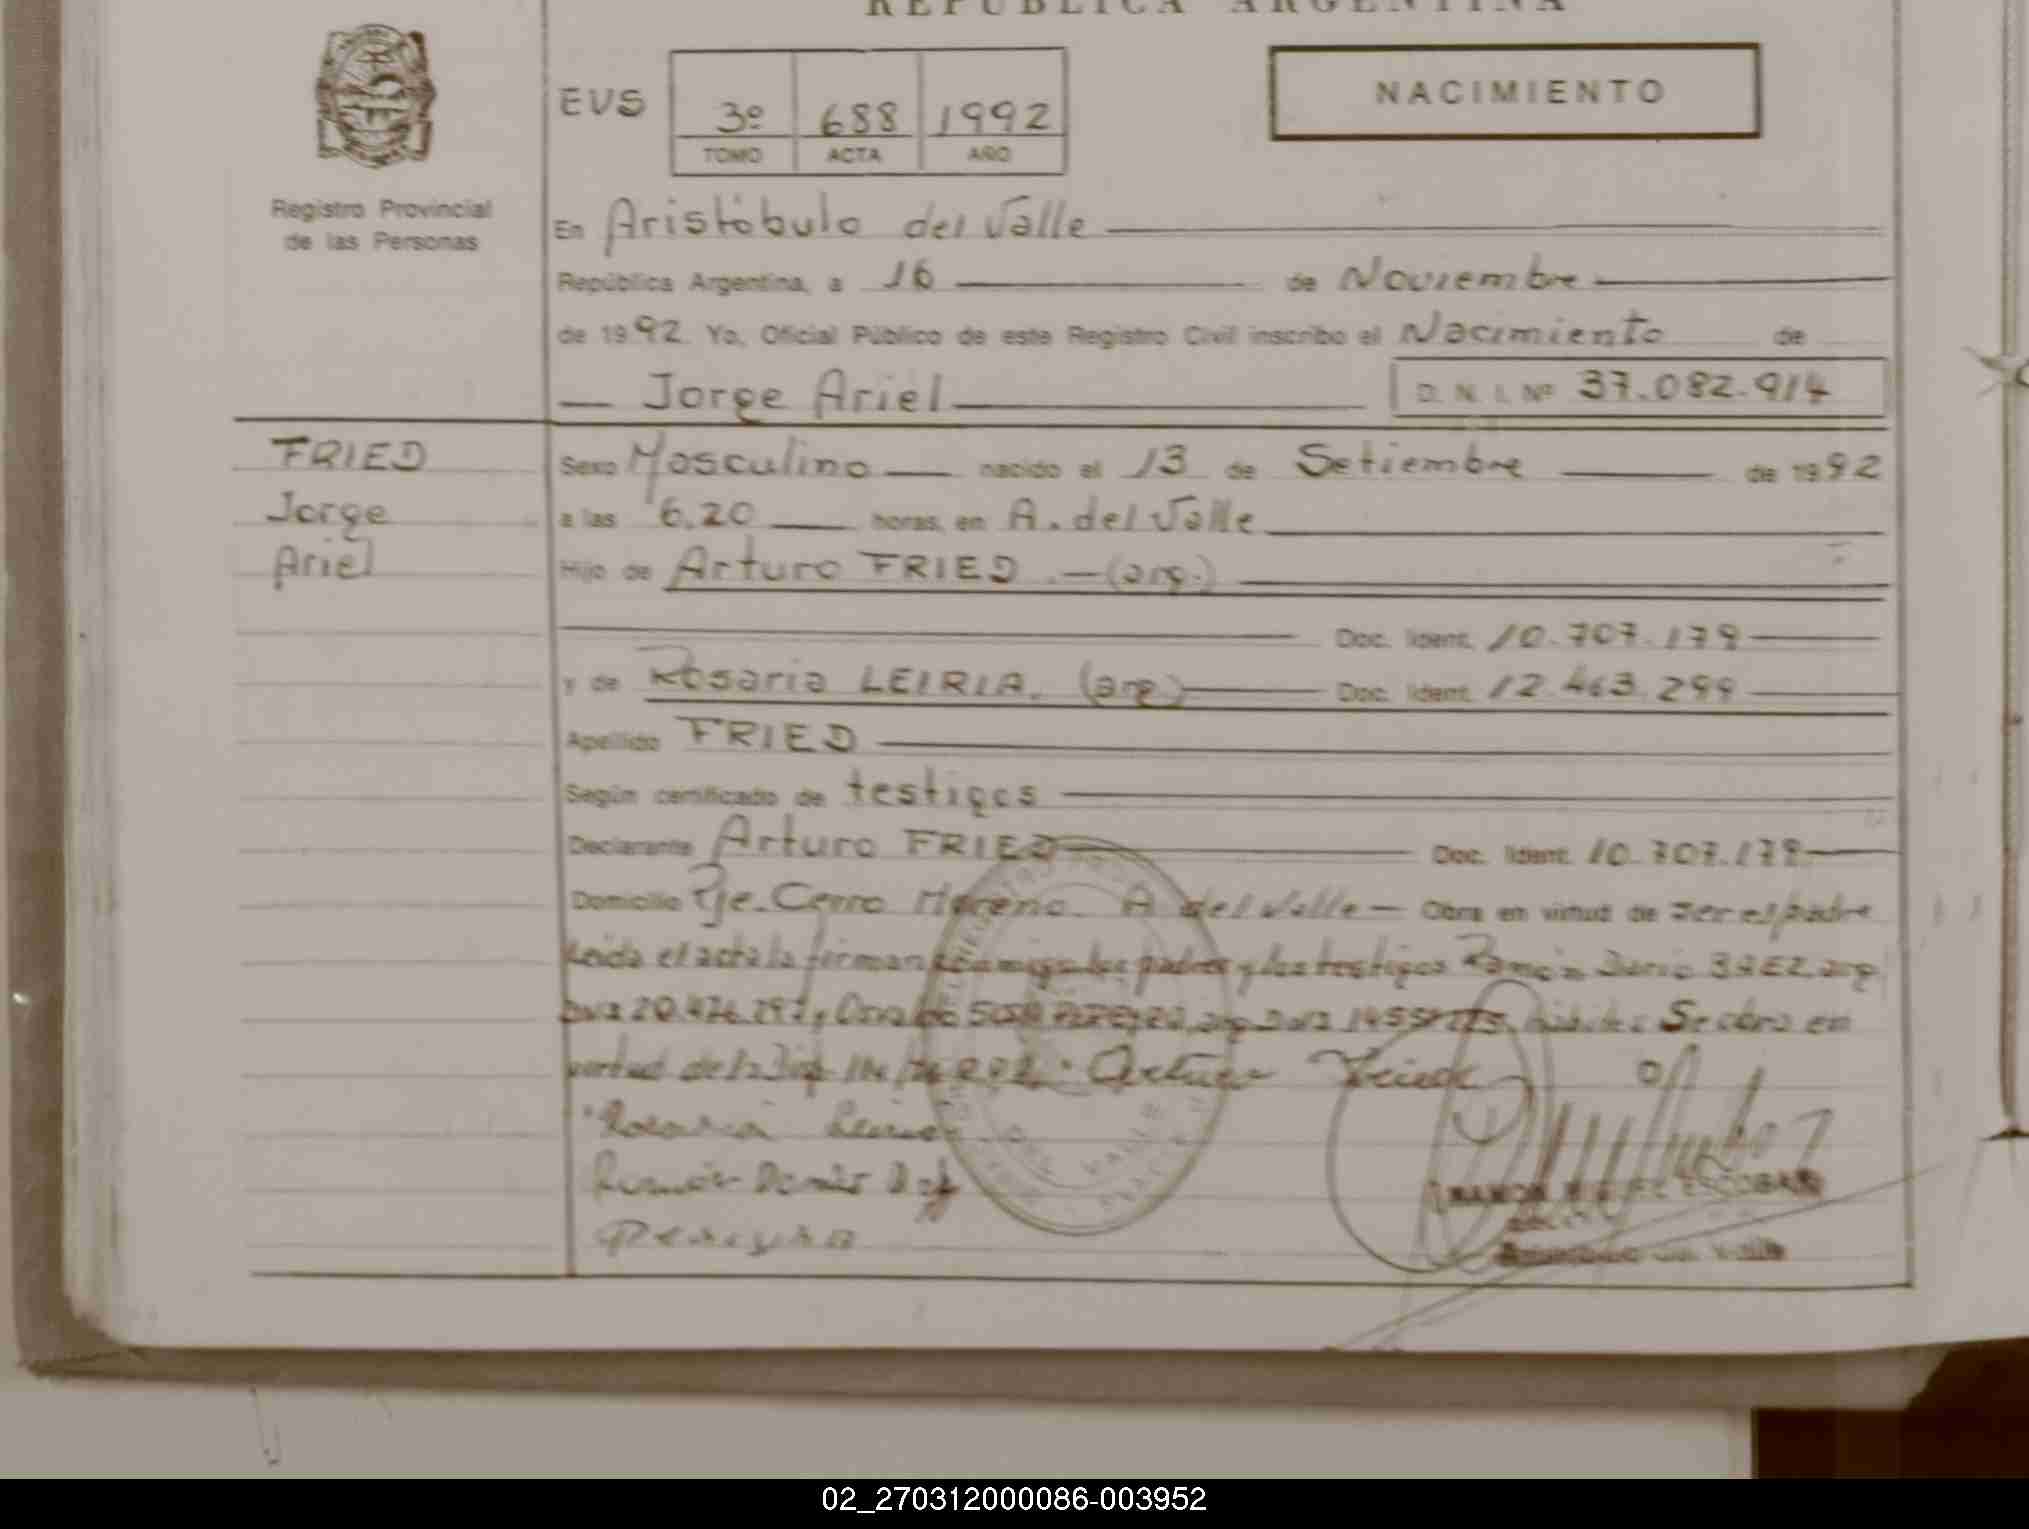 REPUBLICA ARGENTINA
EVS 3º 688 1992
TOMO ACTA AÑO
NACIMIENTO
Registro Provincial
de las Personas
En Aristóbulo del Valle
República Argentina, a 16 de Noviembre
de 1992. Yo, Oficial Público de este Registro Civil inscribo el Nacimiento de
Jorge Ariel D. N. I. Nº 37.082.914
FRIED
Jorge
Ariel
Sexo Masculino nacido el 13 de Setiembre de 1992
a las 6,20 horas, en A. del Valle
Hijo de Arturo FRIED.-(arg.)
Doc. Ident. 10.707.179
y de Rosaria LEIRIA. (arg.) Doc. Ident. 12.463.299
Apellido FRIED
Según certificado de testigos
Declarante Arturo FRIED Doc. Ident. 10.707.179
Domicilio Pje. Cerro Moreno. A del Valle - Obra en virtud de ser el padre
Leida el acta la firman conmigo los padres y los testigos Ramón Dario BAEZ arg
Se obra en
virtud de la Arturo Fried
Rosaria Leiria
Ramón
Pereyra
RAMON ESCOBAR
Aristóbulo del Valle
02_270312000086-003952